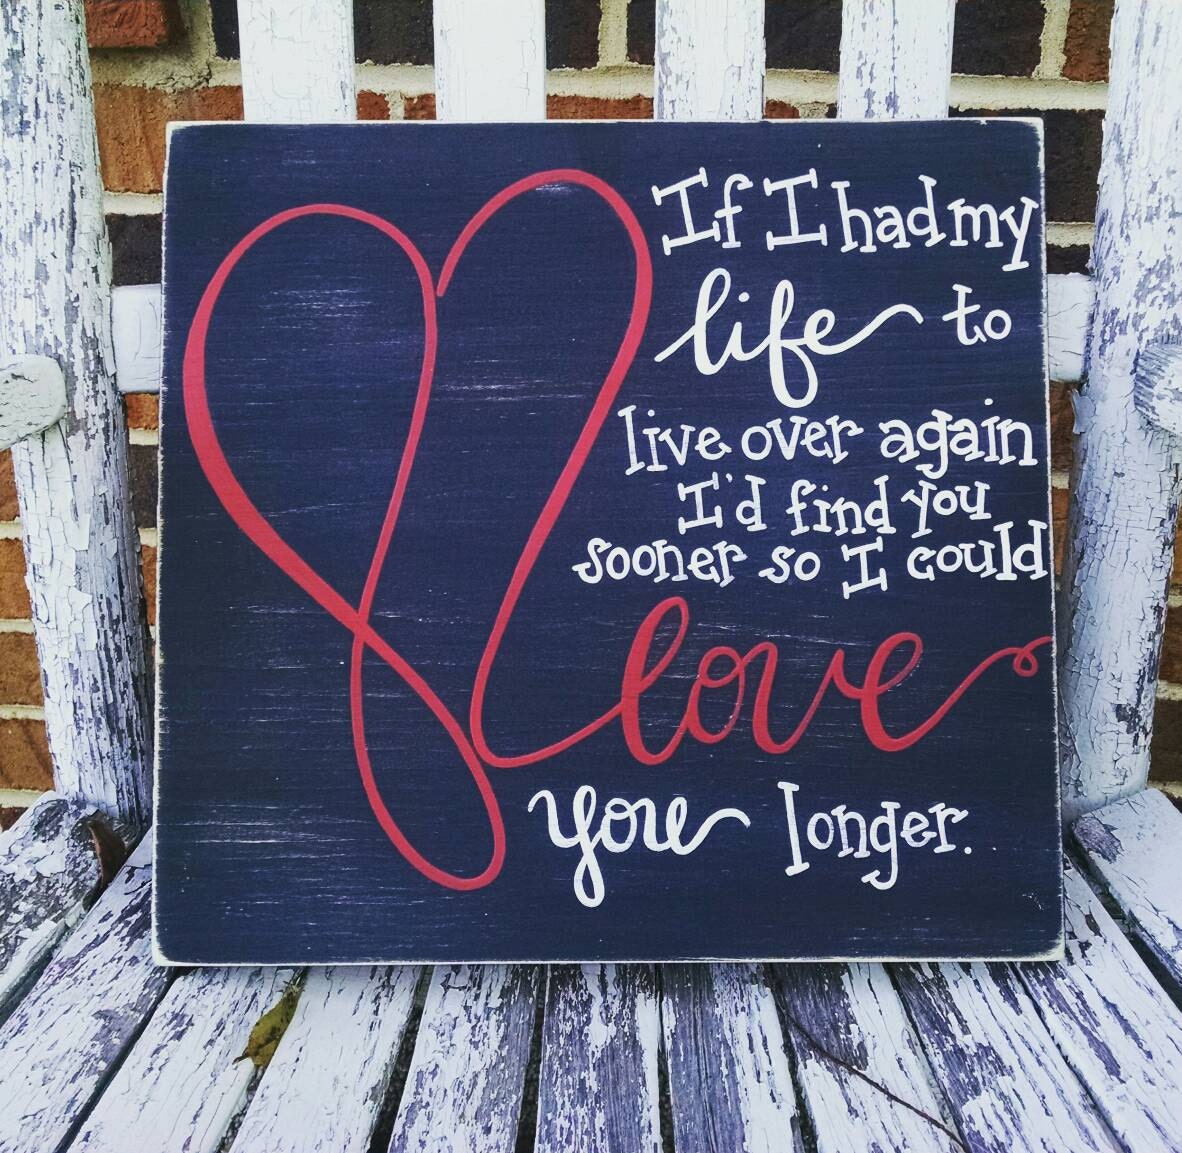 If I had my
life to
live over again
I'd find you
sooner so I could
love
you longer.